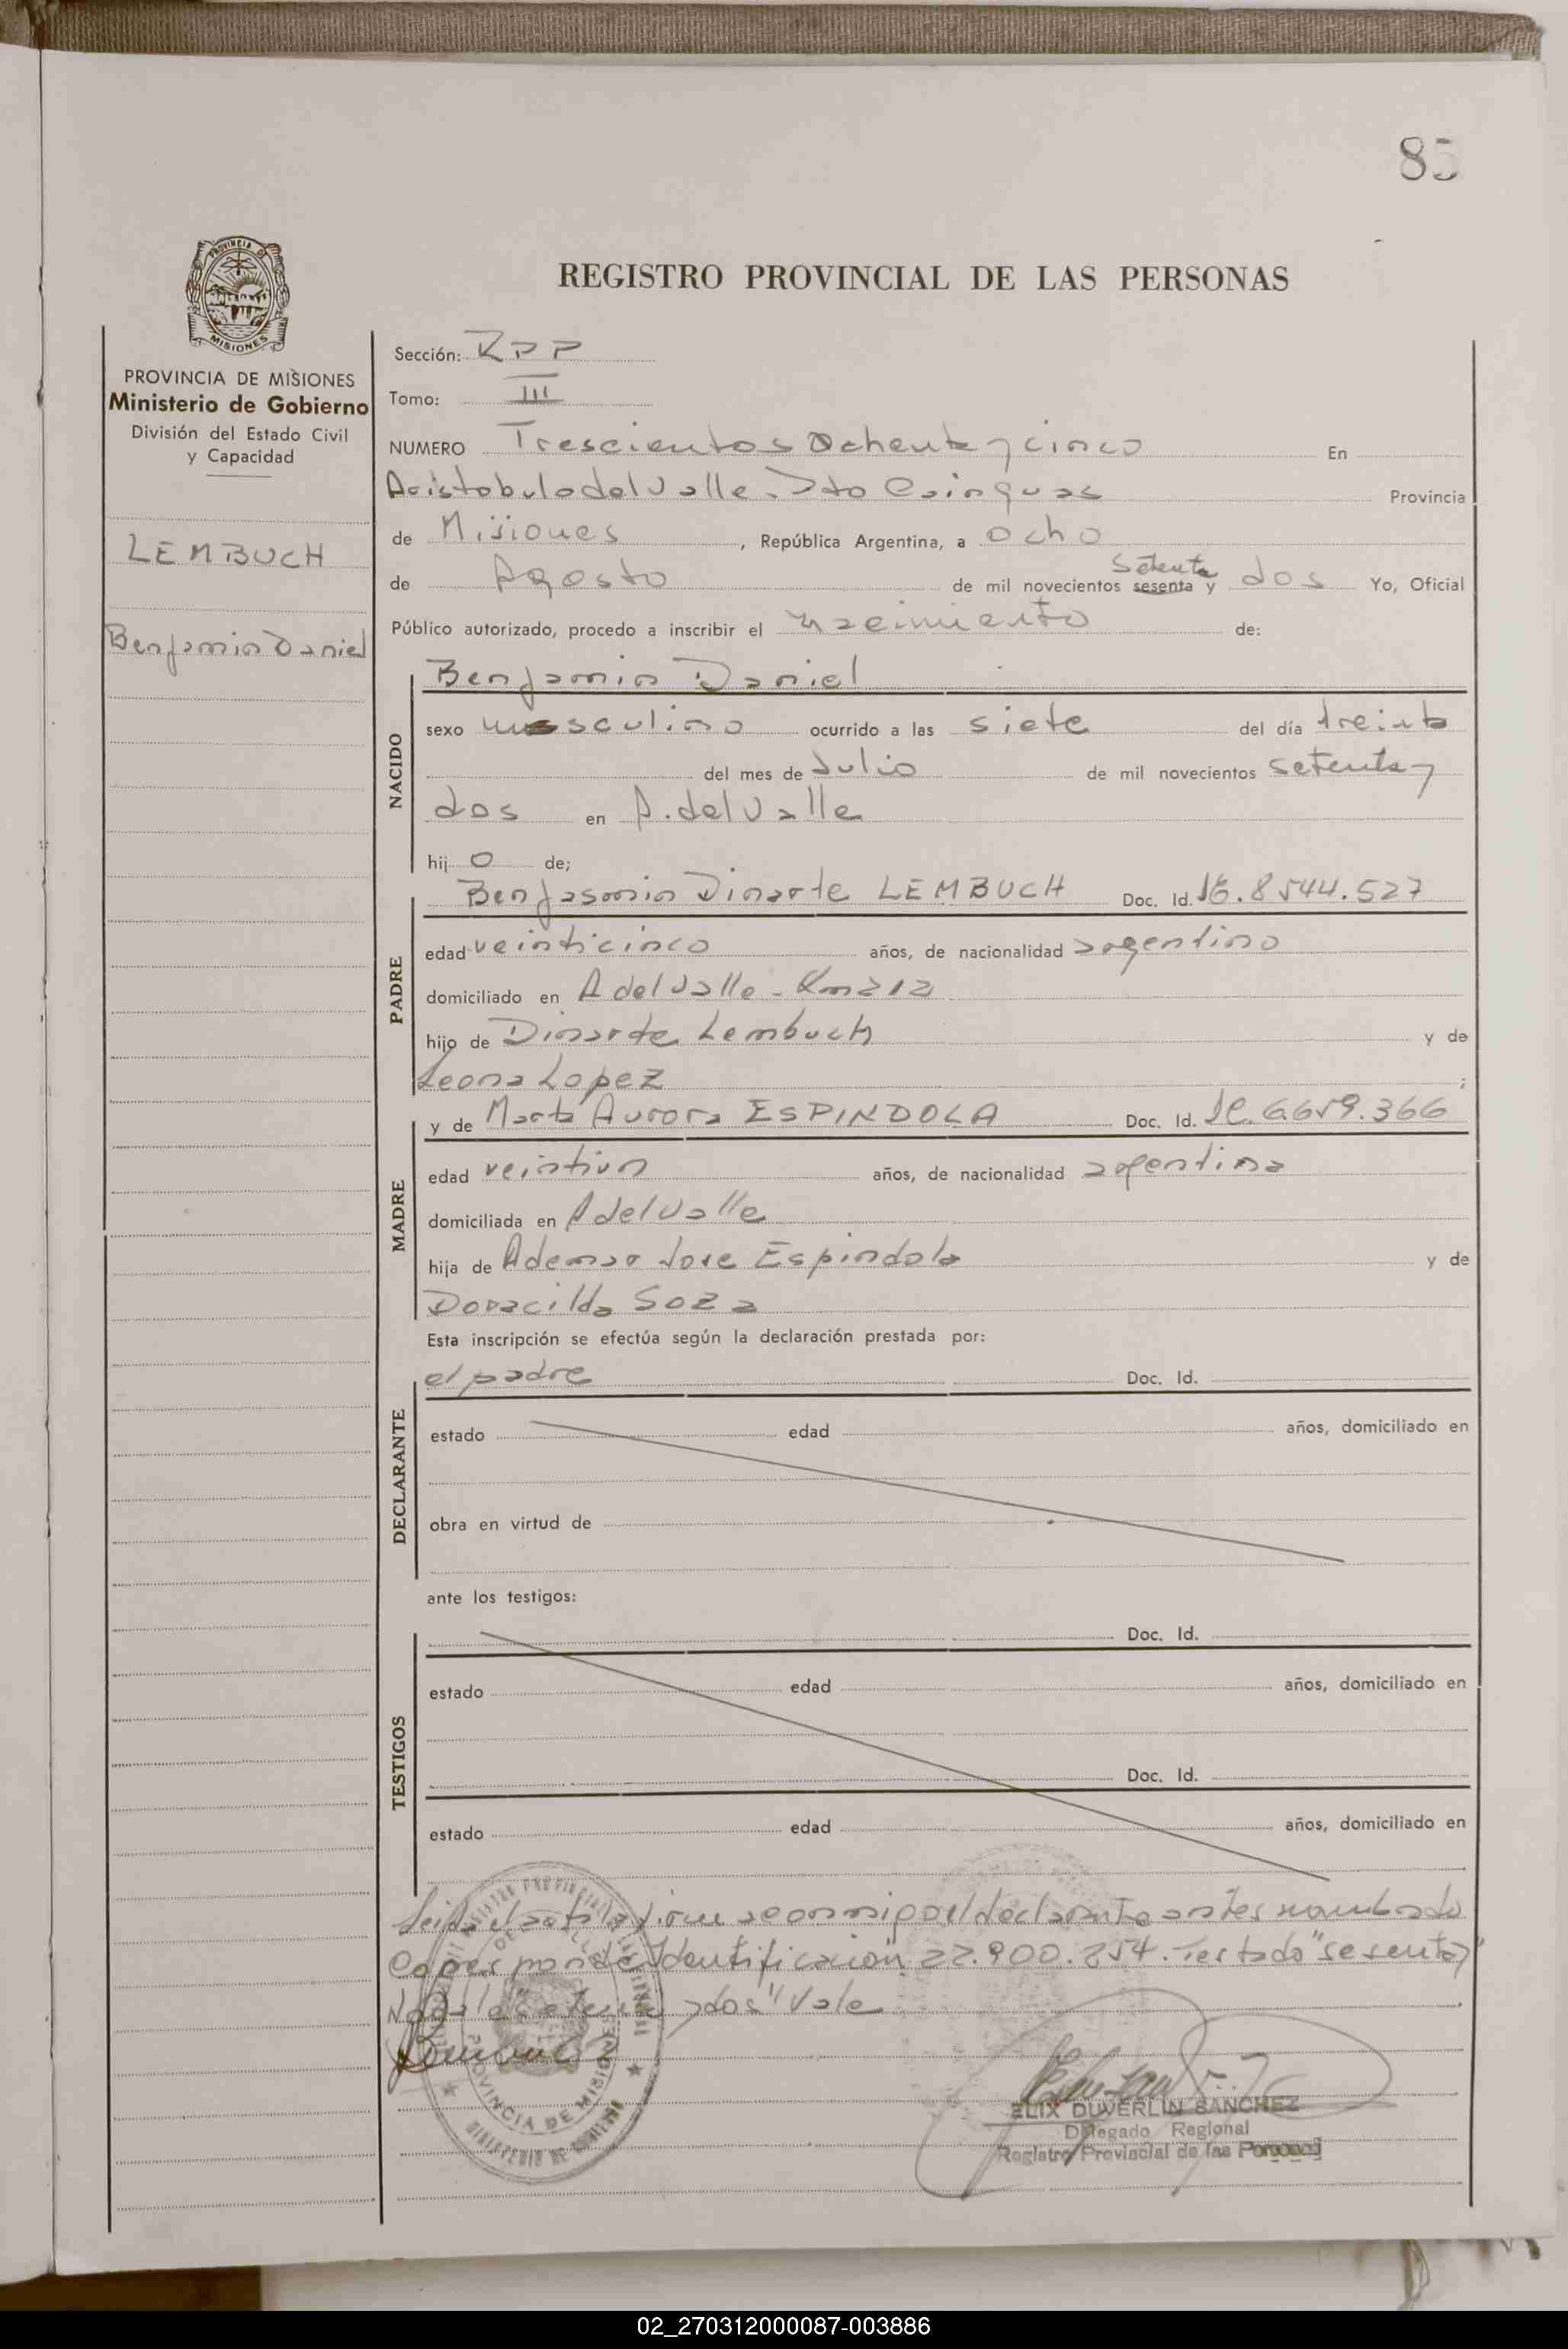 85
REGISTRO PROVINCIAL DE LAS PERSONAS
PROVINCIA DE MISIONES
Ministerio de Gobierno
División del Estado Civil
y Capacidad
LEMBUCH
Benjamin Daniel
Sección: RPP
Tomo: III
NUMERO Trescientos Ochenta y cinco En
Aristobulo del Valle. Dto Cainguas Provincia
de Misiones, República Argentina, a ocho
Setenta
de Agosto de mil novecientos sesenta y dos Yo, Oficial
Público autorizado, procedo a inscribir el nacimiento de:
NACIDO
Benjamin Daniel
sexo masculino ocurrido a las siete del día treinta
del mes de Julio de mil novecientos setenta y
dos en A. del Valle
hij o de;
PADRE
Benjasmin Dinarte LEMBUCH Doc. Id.
edad veinticinco años, de nacionalidad argentino
domiciliado en A del Valle - Km 212
hijo de Dinarte Lembuch y de
Leona Lopez ;
MADRE
y de Marta Aurora ESPINDOLA Doc. Id. 6.659.366
edad veintiun años, de nacionalidad argentina
domiciliada en A del Valle
hija de Ademar Jose Espindola y de
Doracilda Soza
Esta inscripción se efectúa según la declaración prestada por:
el padre Doc. Id.
DECLARANTE
estado edad años, domiciliado en
obra en virtud de
ante los testigos:
TESTIGOS
Doc. Id.
estado edad años, domiciliado en
Doc. Id.
estado edad años, domiciliado en
Leida el acta firma conmigo el declarante antes nombrado
Corresponde Identificación 22.900.254. Testado "sesenta y"
No Vale "setenta y dos" Vale
ELIX DUVERLIN SANCHEZ
Delegado Regional
Registro Provincial de las Personas
PROVINCIA DE MISIONES
MINISTERIO DE GOBIERNO
02_270312000087-003886